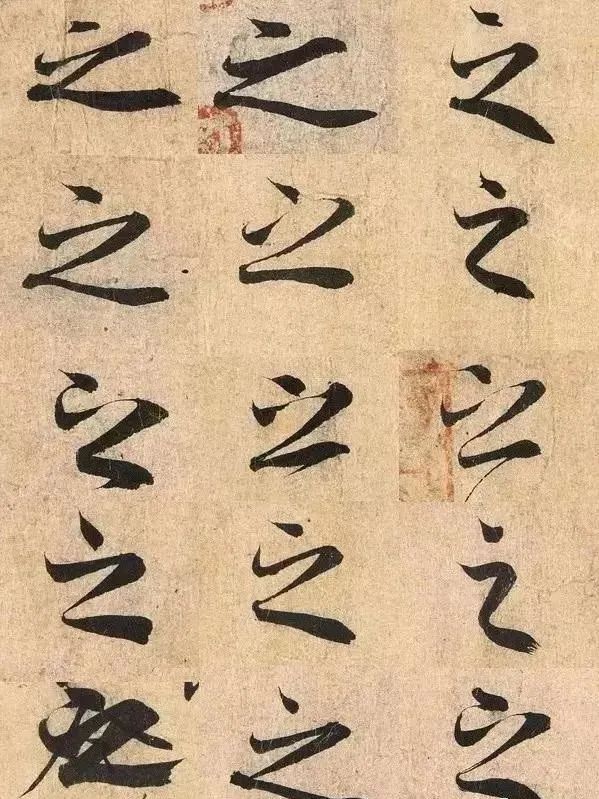 之之之
之之之
之之之
之之之
之之之